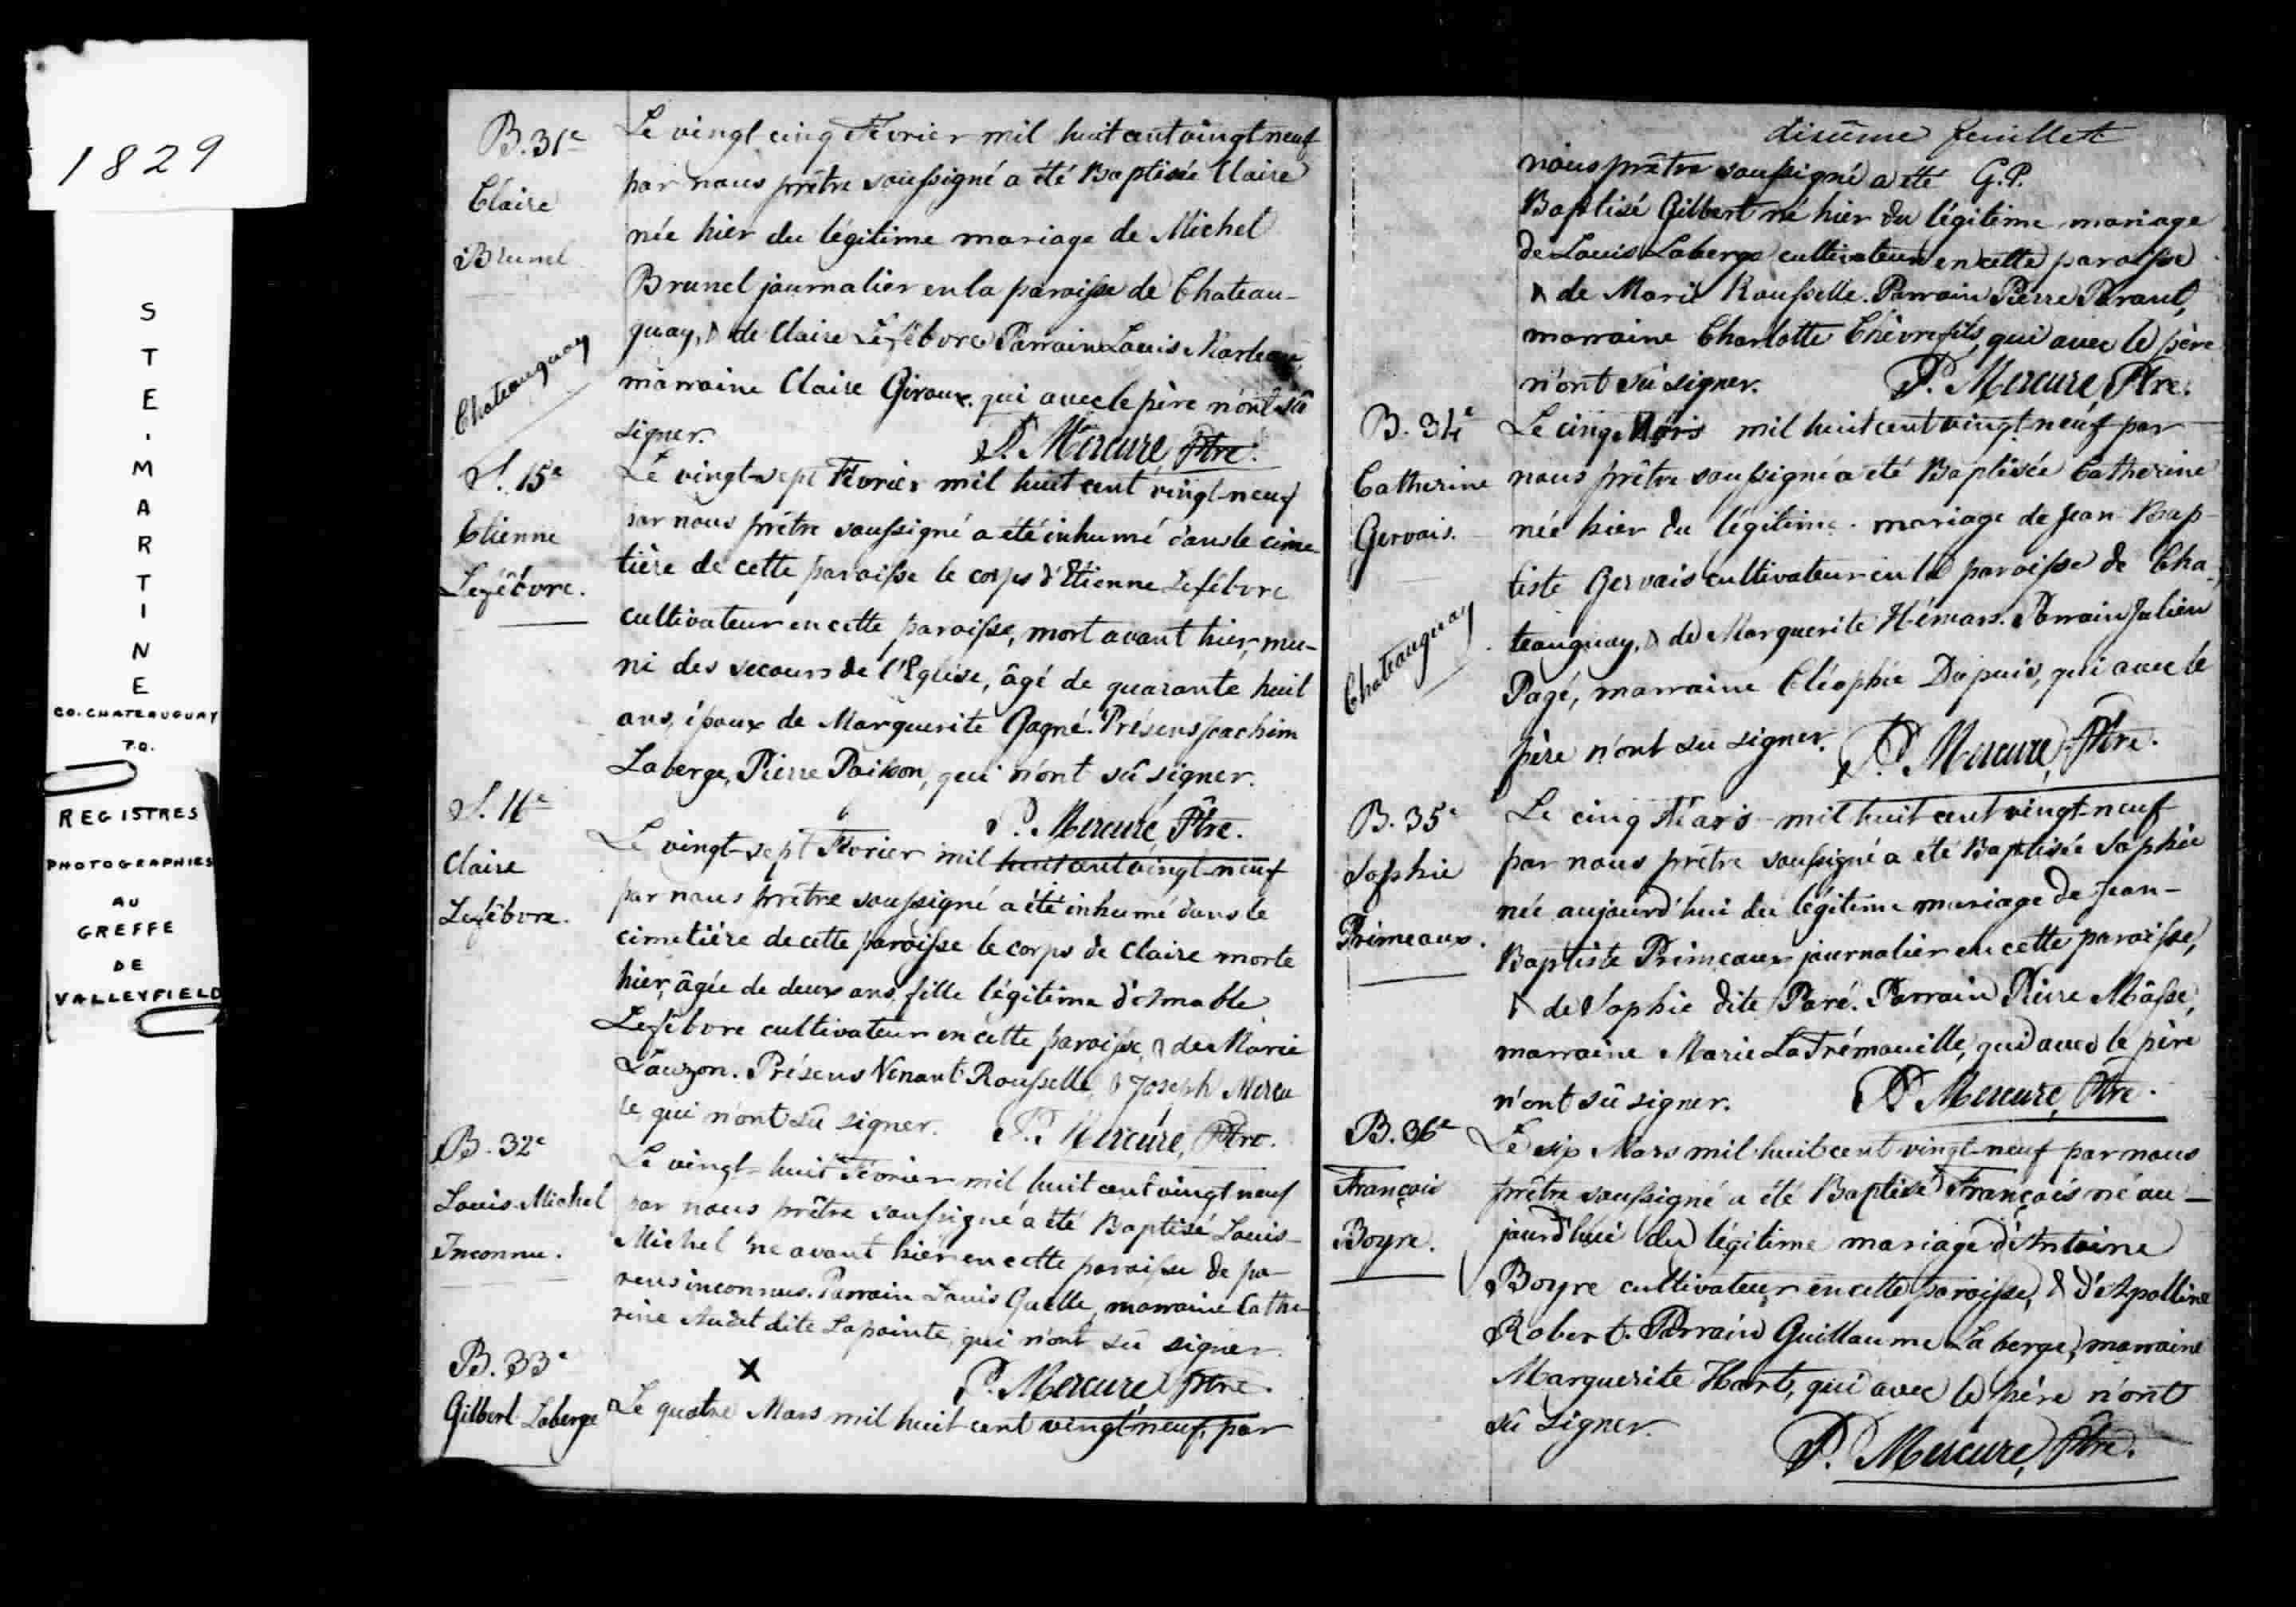 1829
STE. MARTINE
CO. CHATEAUGUAY
P.Q.
REGISTRES
PHOTOGRAPHIES
AU
GREFFE
DE
VALLEYFIELD
B. 31e
Claire
Brunel
Chateauguay
Le vingt cinq Février mil huit cent vingt neuf
par nous prêtre soussigné a été Baptisée Claire
née hier du légitime mariage de Michel
Brunel journalier en la paroisse de Chateau-
guay, & de Claire Lefêbvre. Parrain Louis
marraine Claire Giroux qui avec le père n'ont sû
signer.
P. Mercure, Ptre.
S. 15e
Etienne
Lefêbvre.
Le vingt-sept Février mil huit cent vingt-neuf
par nous prêtre soussigné a été inhumé dans le cime-
tière de cette paroisse le corps d'Etienne Lefêbvre
cultivateur en cette paroisse, mort avant hier, mu-
ni des secours de l'Eglise, âgé de quarante huit
ans, époux de Marguerite Gagné. Présens Joachim
Laberge, Pierre Poisson, qui n'ont sû signer.
P. Mercure, Ptre.
S. 16e
Claire
Lefêbvre.
Le vingt-sept Février mil huit cent vingt-neuf
par nous prêtre soussigné a été inhumé dans le
cimetière de cette paroisse le corps de Claire morte
hier, âgée de deux ans, fille légitime d'Amable
Lefêbvre cultivateur en cette paroisse, & de Marie
Lauzon. Présens Venant Rousselle, & Joseph Mercu
re, qui n'ont sû signer.
P. Mercure, Ptre.
B. 32e
Louis-Michel
Inconnu.
Le vingt-huit Février mil huit cent vingt neuf
par nous prêtre soussigné a été Baptisé Louis-
Michel né avant hier en cette paroisse de pa-
rens inconnus. Parrain Louis Guelle, marraine Cathe-
rine Audet dite Lapointe, qui n'ont sû signer.
X
P. Mercure Ptre.
B. 33e
Gilbert Laberge
Le quatre Mars mil huit cent vingt-neuf, par
dixième feuillet
nous prêtre soussigné a été G.P.
Baptisé Gilbert né hier du légitime mariage
de Louis Laberge cultivateur en cette paroisse
& de Marie Rousselle. Parrain Pierre Parant,
marraine Charlotte Chèvrefils, qui avec le père
n'ont sû signer.
P. Mercure, Ptre.
B. 34e
Catherine
Gervais.
Chateauguay
Le cinq Mars mil huit cent vingt-neuf par
nous prêtre soussigné a été Baptisée Catherine
née hier du légitime mariage de Jean-Bap-
tiste Gervais cultivateur en la paroisse de Cha-
teauguay, & de Marguerite Hémars. Parrain Julien
Pagé, marraine Cléophie Dupuis, qui avec le
père n'ont su signer.
P. Mercure, Ptre.
B. 35e
Sophie
Primeaux.
Le cinq Mars mil huit cent vingt-neuf
par nous prêtre soussigné a été Baptisée Sophie
née aujourd'hui du légitime mariage de Jean-
Baptiste Primeaux journalier en cette paroisse,
& de Sophie dite Paré. Parrain Pierre Mâsse,
marraine Marie LaTrémouille, qui avec le père
n'ont sû signer.
P. Mercure, Ptre.
B. 36e
François
Boyre.
Le six Mars mil huit cent vingt-neuf par nous
prêtre soussigné a été Baptisé François né au-
jourd'hui du légitime mariage d'Antoine
Boyre cultivateur en cette paroisse, & d'Apolline
Robert. Parrain Guillaume Laberge, marraine
Marguerite Hart, qui avec le père n'ont
sû signer.
P. Mercure, Ptre.